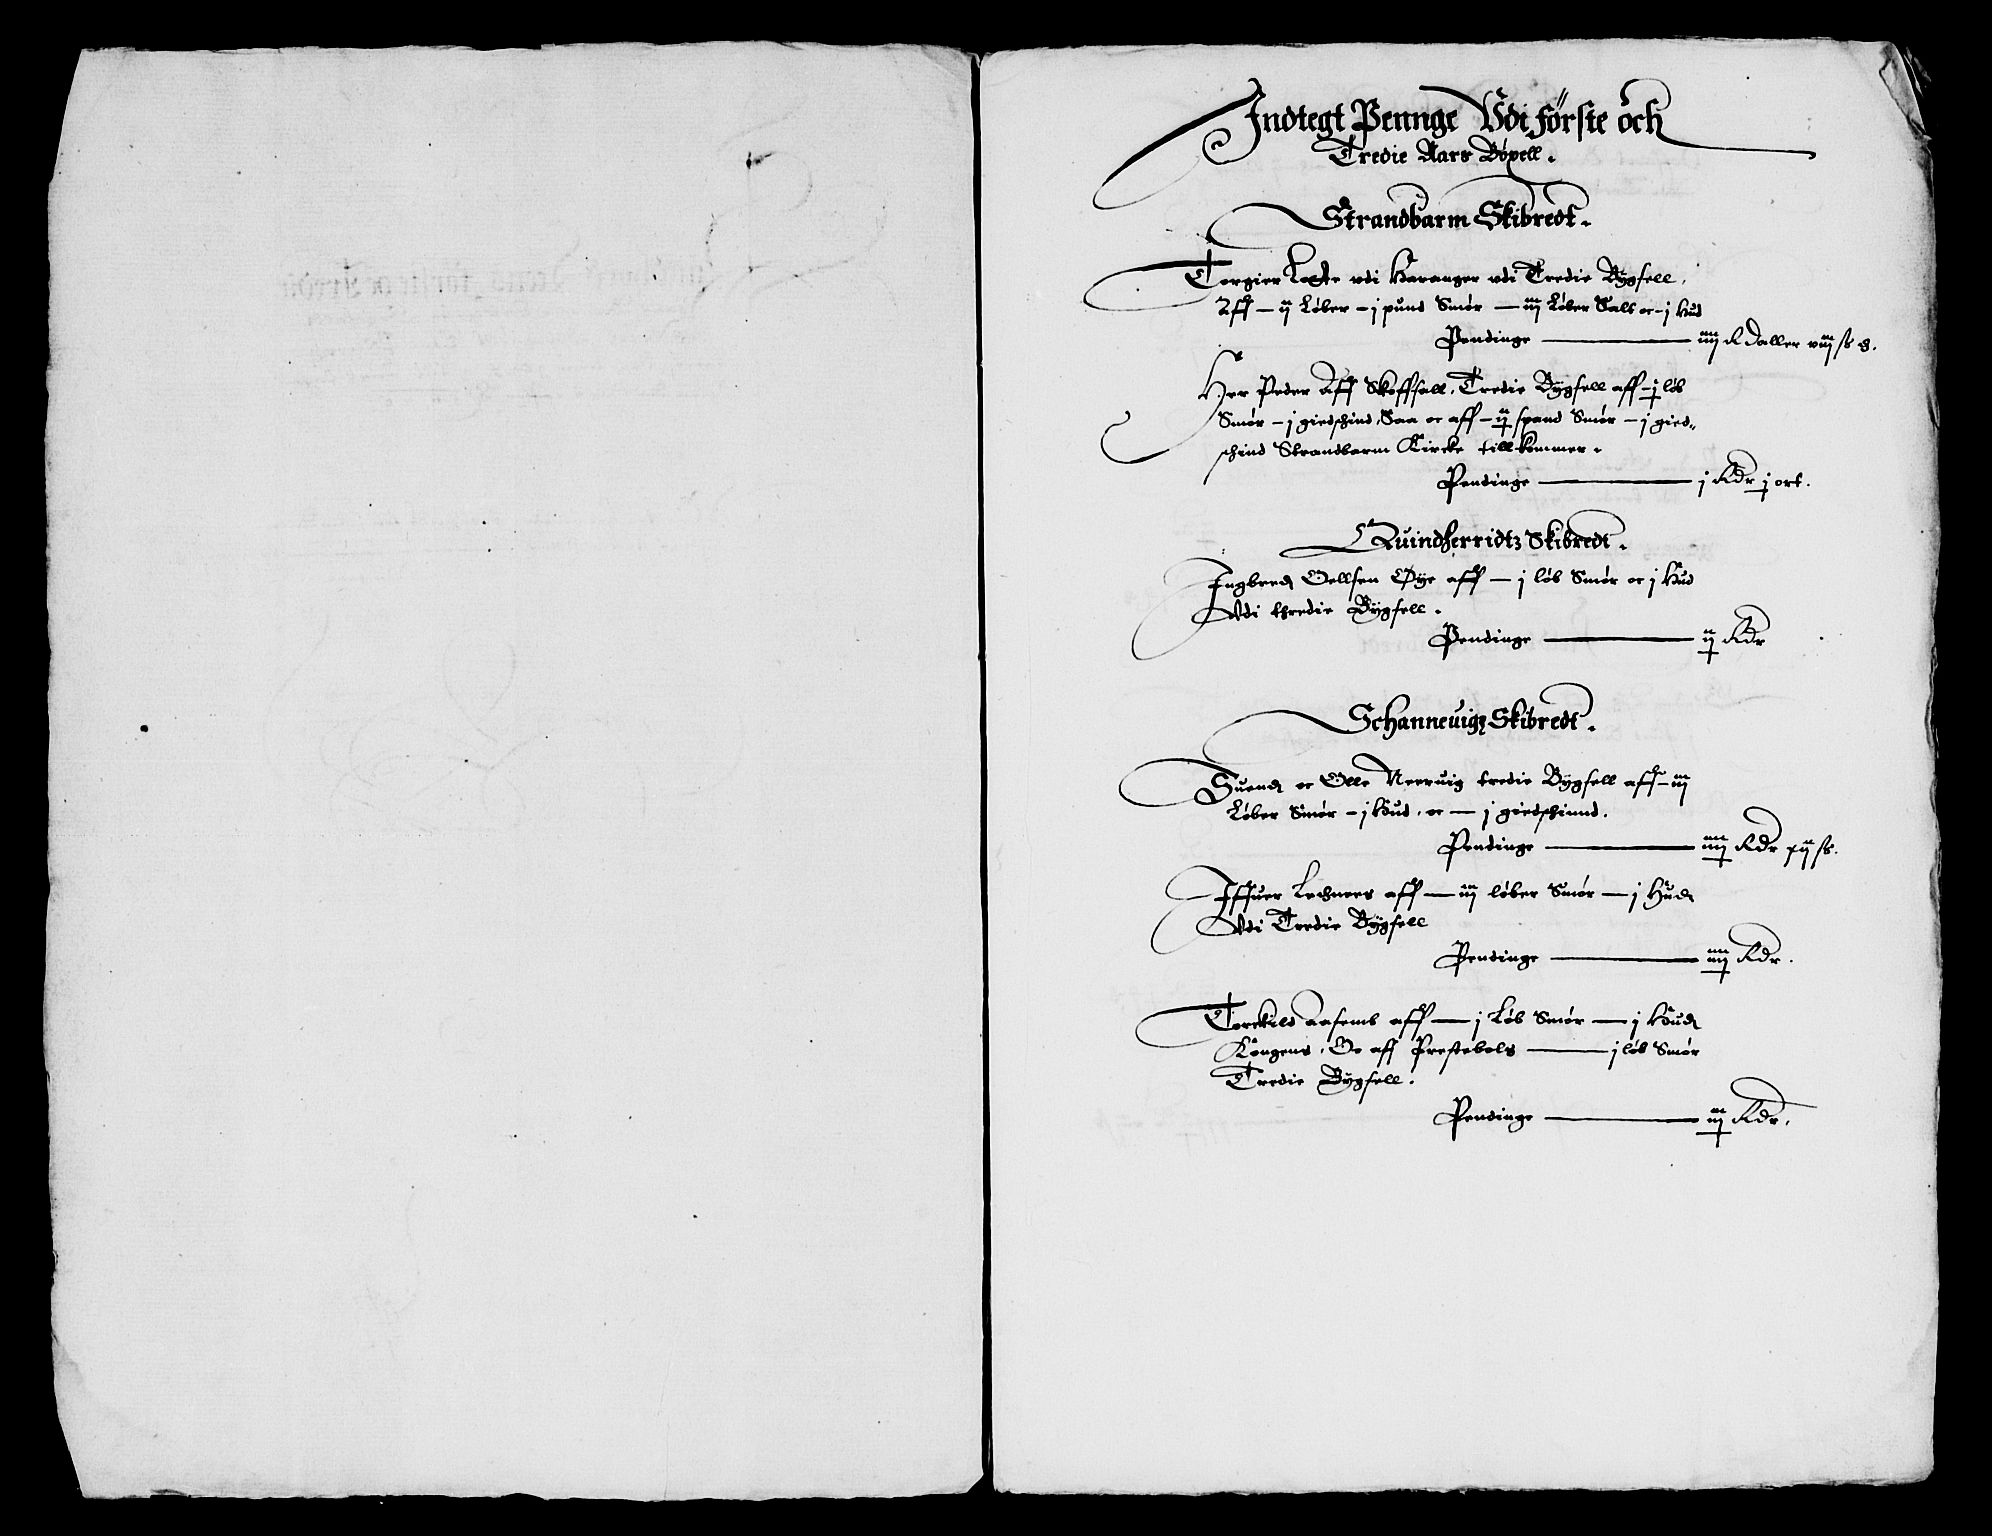 Indtegt Pennge Vdi Förste öch
Tredie Aars Böxell.
Strandbarm Skibredt.
Torgier Lofte vdi Haranger vdi Tredie Bygsell,
Aff — ij Løber — j pund Smør — iij Løber Salt oc — j Hud
Pendinge — iiij R daller viij ß d.
Her Peder Aff Skofffall, Tredie Bygsell aff — j løb
Smør — j giedschind, Saa oc aff — ij spand Smør — j gied-
schind Strandbarm Kircke tillkommer.
Pendinge — j Rdr j ort.
Quindherridtz Skibredt.
Ingbred Oellsen Øye aff — j løb Smør oc j Hud
Vdi thredie Bygsell.
Pendinge — ij Rdr
Schanneuigz Skibredt.
Suend oc Olle Neeruig tredie Bygsell aff — iij
Løber Smør — j Hud, oc — j giedschinnd.
Pendinge — iiij Rdr xij ß.
Iffuer Lechnees aff — iij løber Smør — j Hud
Vdi Tredie Bygsell
Pendinge — iiij Rdr.
Torckild Aasemb aff — j Løb Smør — j Hud
Kongens, Oc aff Prestebols — j løb Smør
Tredie Bygsell.
Pendinge — iij Rdr.